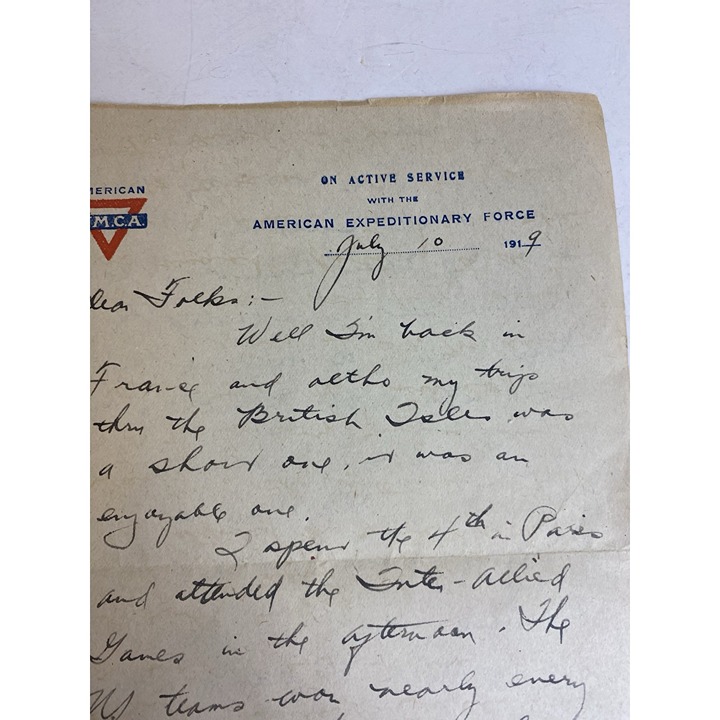 ON ACTIVE SERVICE
WITH THE
AMERICAN EXPEDITIONARY FORCE
MERICAN
M.C.A.
July 10 1919
Dear Folks:—
Well I'm back in
France and altho my trip
thru the British Isles was
a short one, it was an
enjoyable one.
I spent the 4th in Paris
and attended the Inter-Allied
Games in the afternoon. The
US teams won nearly every